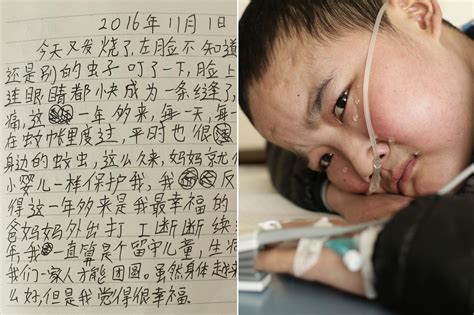 2016年11月1日
今天又发烧了,左脸不知道
还是别的虫子叮了一下,脸上
连眼睛都快成为一条缝了,
痛,这一年多来,每一天,每
在蚊帐里度过,平时也很
身边的蚊虫,这么久来,妈妈就
小婴儿一样保护我,我反
得这一年多来是我最幸福的
爸妈妈外出打工断断续
年,我一直算是个留守儿童,生
我们一家人才能团圆。虽然身体越来
么好,但是我觉得很幸福.